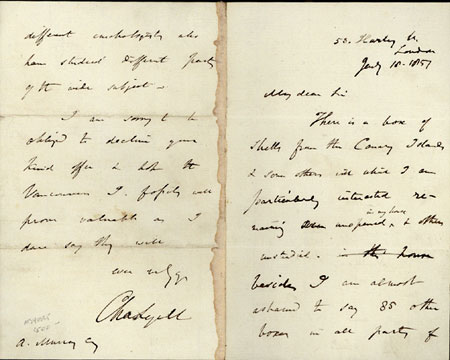 53. Harley St.
London
July 18. 1857
My dear Sir
There is a box of
shells from the Canary Islands
& some others in which I am
particularly interested re-
maining unopened in my house & others
unstudied.
besides I am almost
ashamed to say 85 other
boxes in all parts of
different conchologists who
have studied different parts
of the wide subject.
I am sorry to be
obliged to decline your
kind offer & hope the
Vancouvers I. fossils will
prove valuable as I
dare say they will
ever truly yrs
Cha Lyell
A. Murray Esq